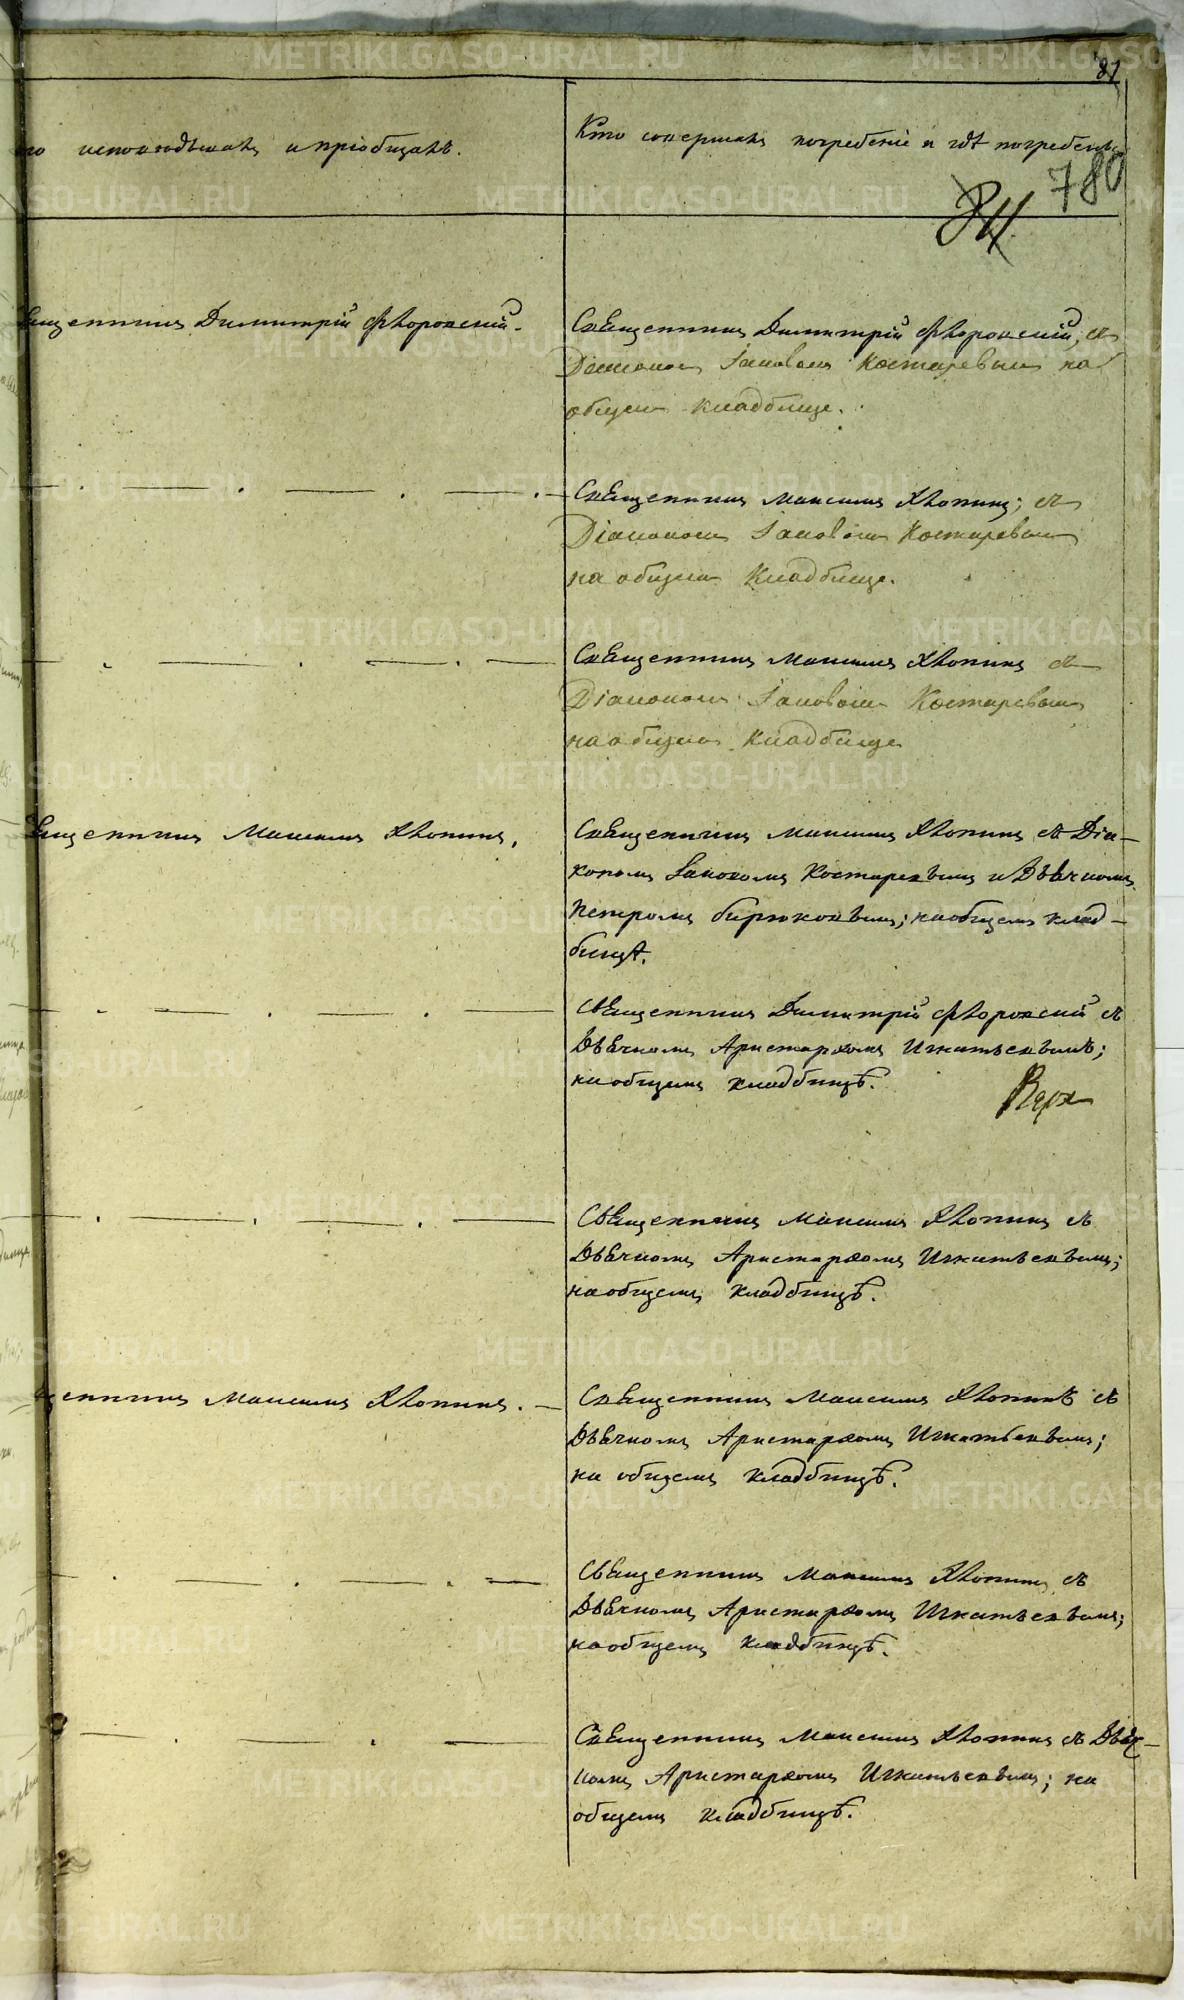 81
го исповѣдывалъ и пріобщалъ.
Кто совершалъ погребеніе и гдѣ погребены
780
Священникъ Димитрій Флоровскій.
Священникъ Димитрій Флоровскій, съ
Діакономъ Іаковомъ Костаревымъ на
общемъ кладбище.
Священникъ Максимъ Хлопинъ; съ
Діакономъ Іаковомъ Костаревымъ
на общемъ Кладбище.
Священникъ Максимъ Хлопинъ съ
Діакономъ Іаковомъ Костаревымъ
на общемъ Кладбище
Священникъ Максимъ Хлопинъ,
Священникъ Максимъ Хлопинъ съ Діа-
кономъ Іаковомъ Костаревымъ и Дьячкомъ
Петромъ Бирюковымъ; на общемъ клад-
бищѣ.
Священникъ Димитрій Флоровскій съ
Дьячкомъ Аристархомъ Игнатьевымъ;
на общемъ кладбищѣ.
Верх
Священникъ Максимъ Хлопинъ съ
Дьячкомъ Аристархомъ Игнатьевымъ;
на общемъ кладбищѣ.
щенникъ Максимъ Хлопинъ.
Священникъ Максимъ Хлопинъ съ
Дьячкомъ Аристархомъ Игнатьевымъ;
на общемъ кладбищѣ.
Священникъ Максимъ Хлопинъ съ
Дьячкомъ Аристархомъ Игнатьевымъ;
на общемъ кладбищѣ.
Священникъ Максимъ Хлопинъ съ Дьяч-
комъ Аристархомъ Игнатьевымъ; на
общемъ кладбищѣ.
METRIKI.GASO-URAL.RU